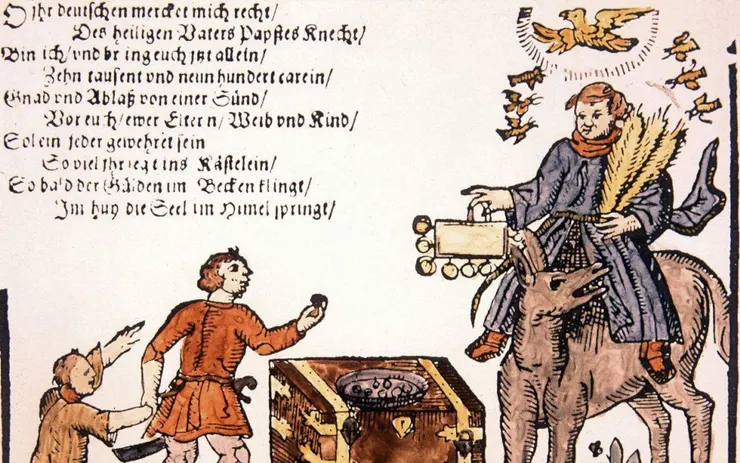 O jhr deutschen mercket mich recht/
Des heiligen Vaters Papstes Knecht/
Bin ich/ vnd bring euch jtzt allein/
Zehn tausent vnd neun hundert carein/
Gnad vnd Ablaß von einer Sünd/
Vor euch/ ewer Eltern/ Weib vnd Kind/
Sol ein jeder gewehret sein
So viel jhr legt ins Kästelein/
So bald der Gülden im Becken klingt/
Im huy die Seel im Himel springt/